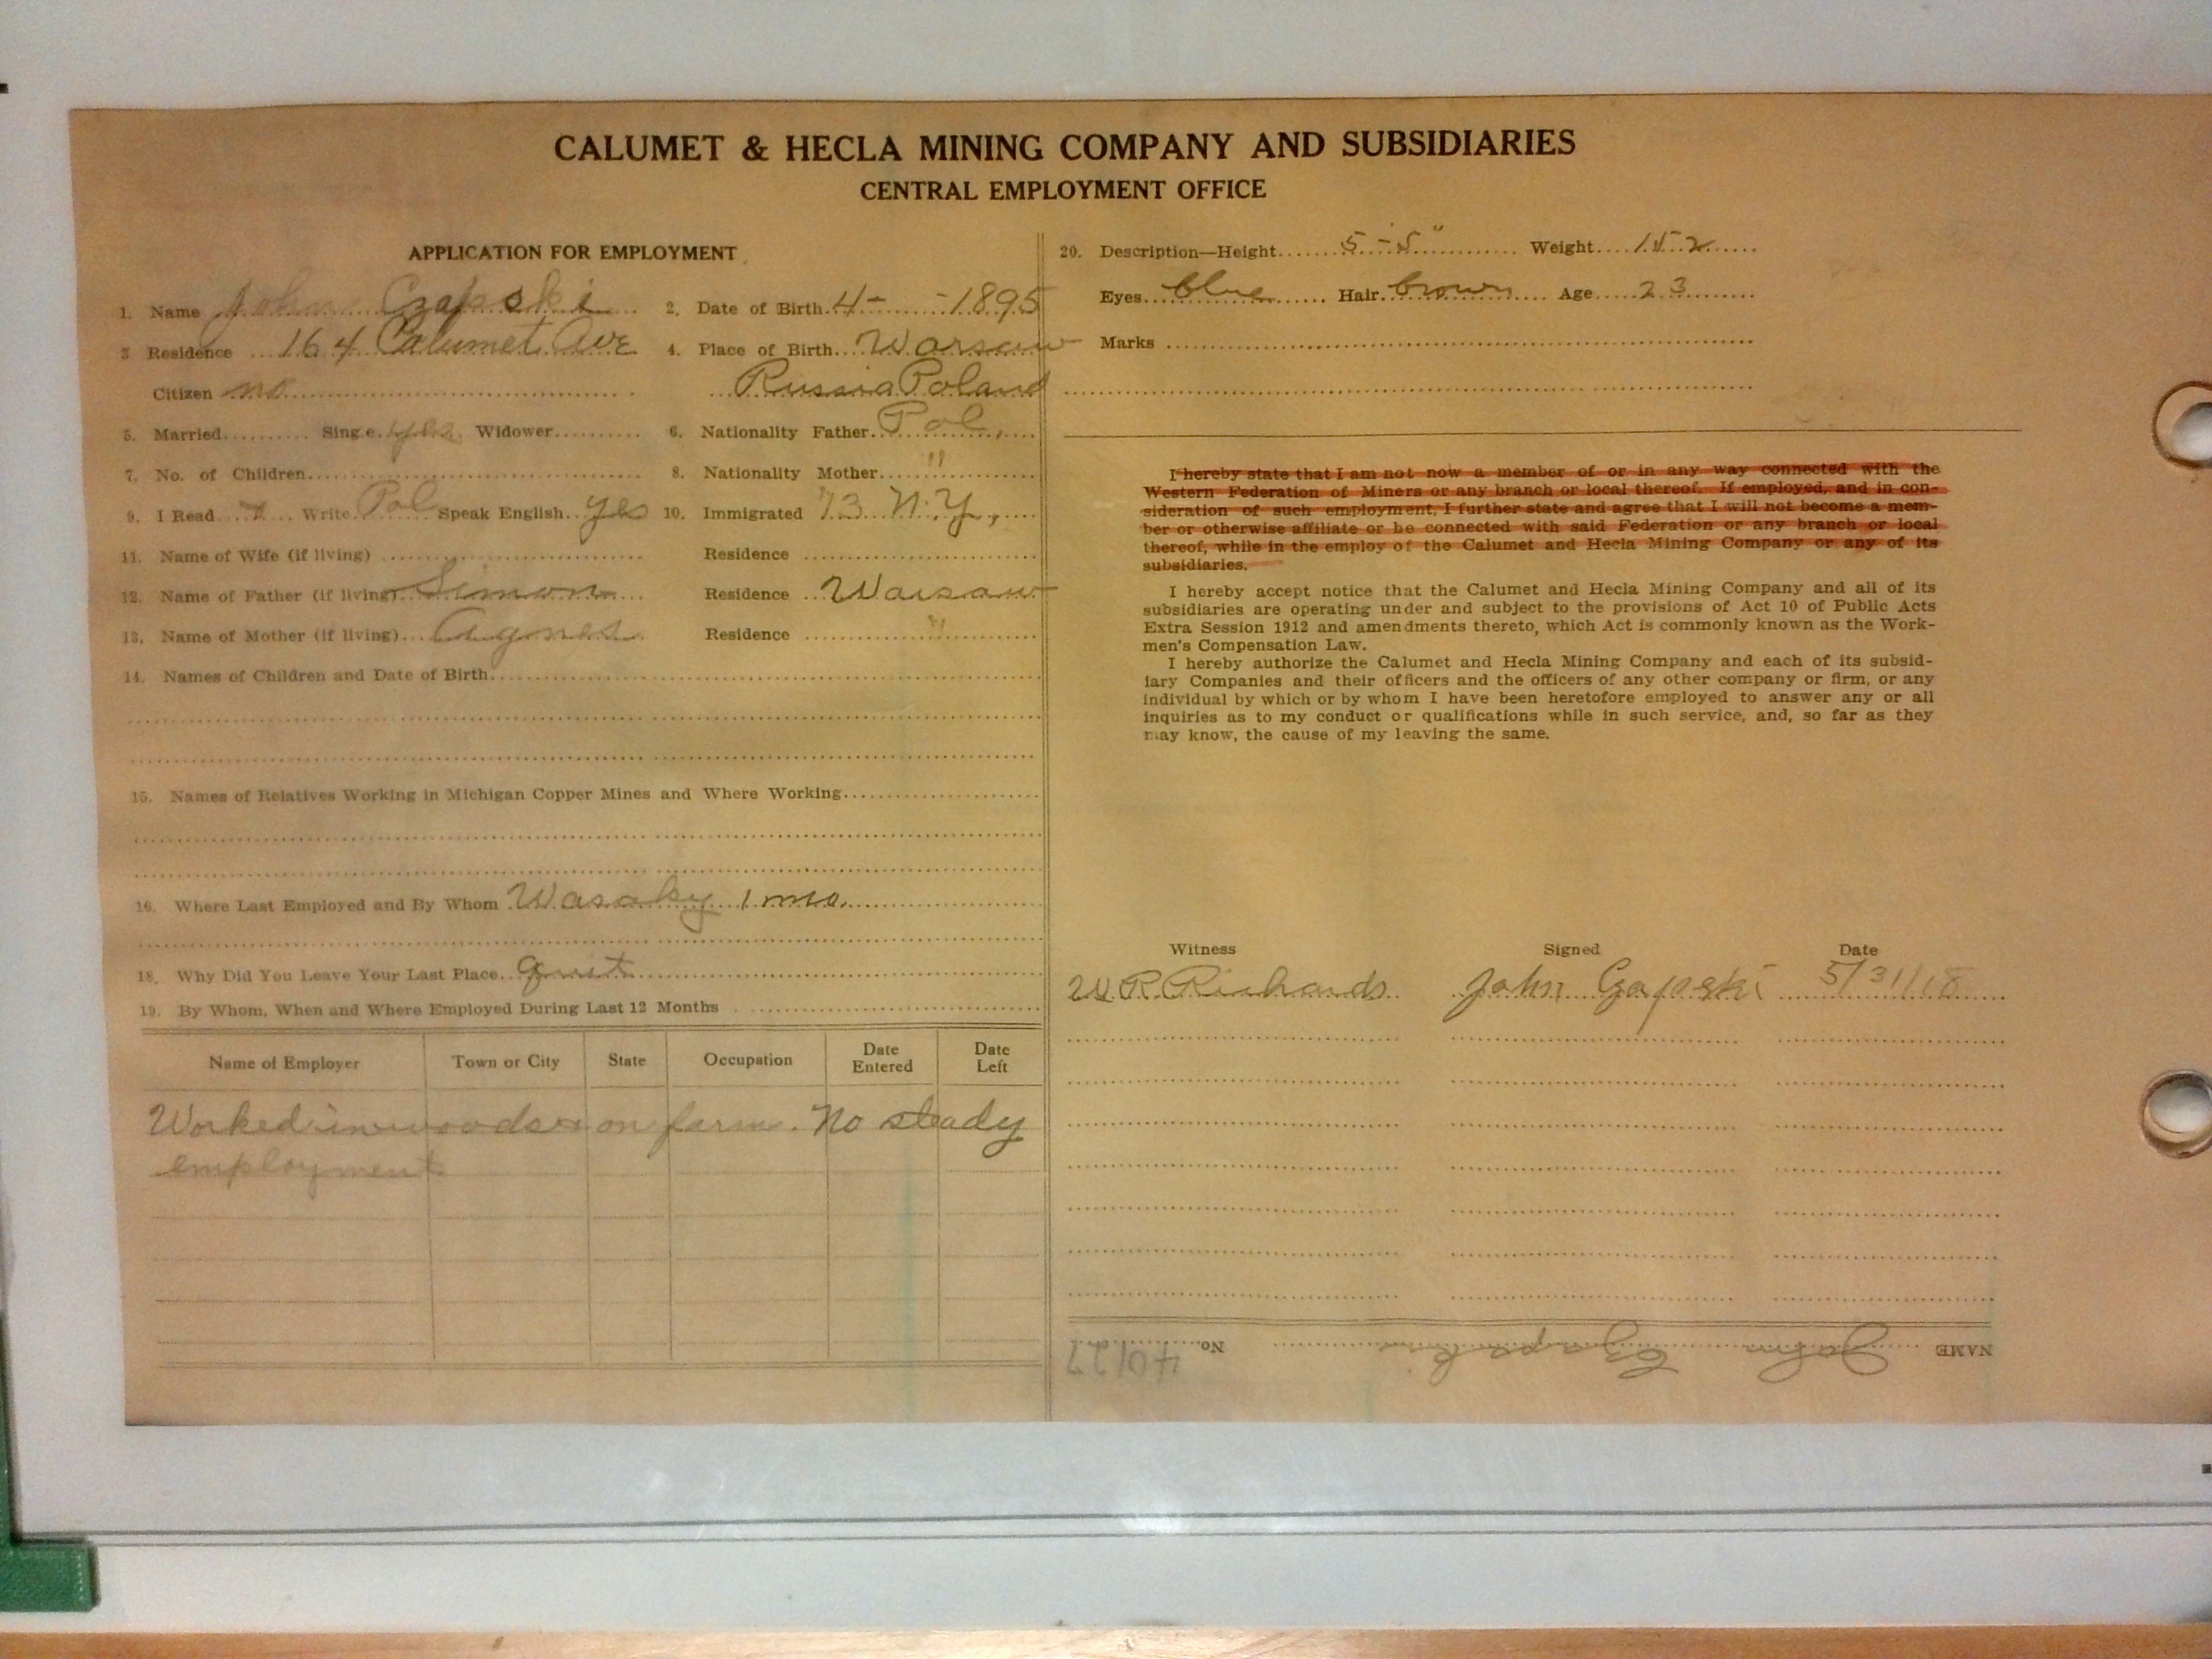 CALUMET & HECLA MINING COMPANY AND SUBSIDIARIES
CENTRAL EMPLOYMENT OFFICE
APPLICATION FOR EMPLOYMENT
1. Name John Czapski 2. Date of Birth 4- -1895
3 Residence 164 Calumet Ave 4. Place of Birth Warsaw
Citizen no Russia Poland
5. Married Single yes Widower 6. Nationality Father Pol.
7. No. of Children 8. Nationality Mother "
9. I Read Write Pol Speak English yes 10. Immigrated '13 N.Y.
11. Name of Wife (if living) Residence
12. Name of Father (if living) Simon Residence Warsaw
13. Name of Mother (if living) Agnes Residence "
14. Names of Children and Date of Birth
15. Names of Relatives Working in Michigan Copper Mines and Where Working
16. Where Last Employed and By Whom 1 mo.
18. Why Did You Leave Your Last Place quit
19. By Whom, When and Where Employed During Last 12 Months
Name of Employer Town or City State Occupation Date Entered Date Left
Worked in woods & on farm. No steady
employment
20. Description—Height 5-5" Weight 152
Eyes blue Hair brown Age 23
Marks
I hereby state that I am not now a member of or in any way connected with the
Western Federation of Miners or any branch or local thereof. If employed, and in con-
sideration of such employment, I further state and agree that I will not become a mem-
ber or otherwise affiliate or be connected with said Federation or any branch or local
thereof, while in the employ of the Calumet and Hecla Mining Company or any of its
subsidiaries.
I hereby accept notice that the Calumet and Hecla Mining Company and all of its
subsidiaries are operating under and subject to the provisions of Act 10 of Public Acts
Extra Session 1912 and amendments thereto, which Act is commonly known as the Work-
men's Compensation Law.
I hereby authorize the Calumet and Hecla Mining Company and each of its subsid-
iary Companies and their officers and the officers of any other company or firm, or any
individual by which or by whom I have been heretofore employed to answer any or all
inquiries as to my conduct or qualifications while in such service, and, so far as they
may know, the cause of my leaving the same.
Witness Signed Date
W R Richards John Czapski 5/31/18
NAME John Czapski No. 40127